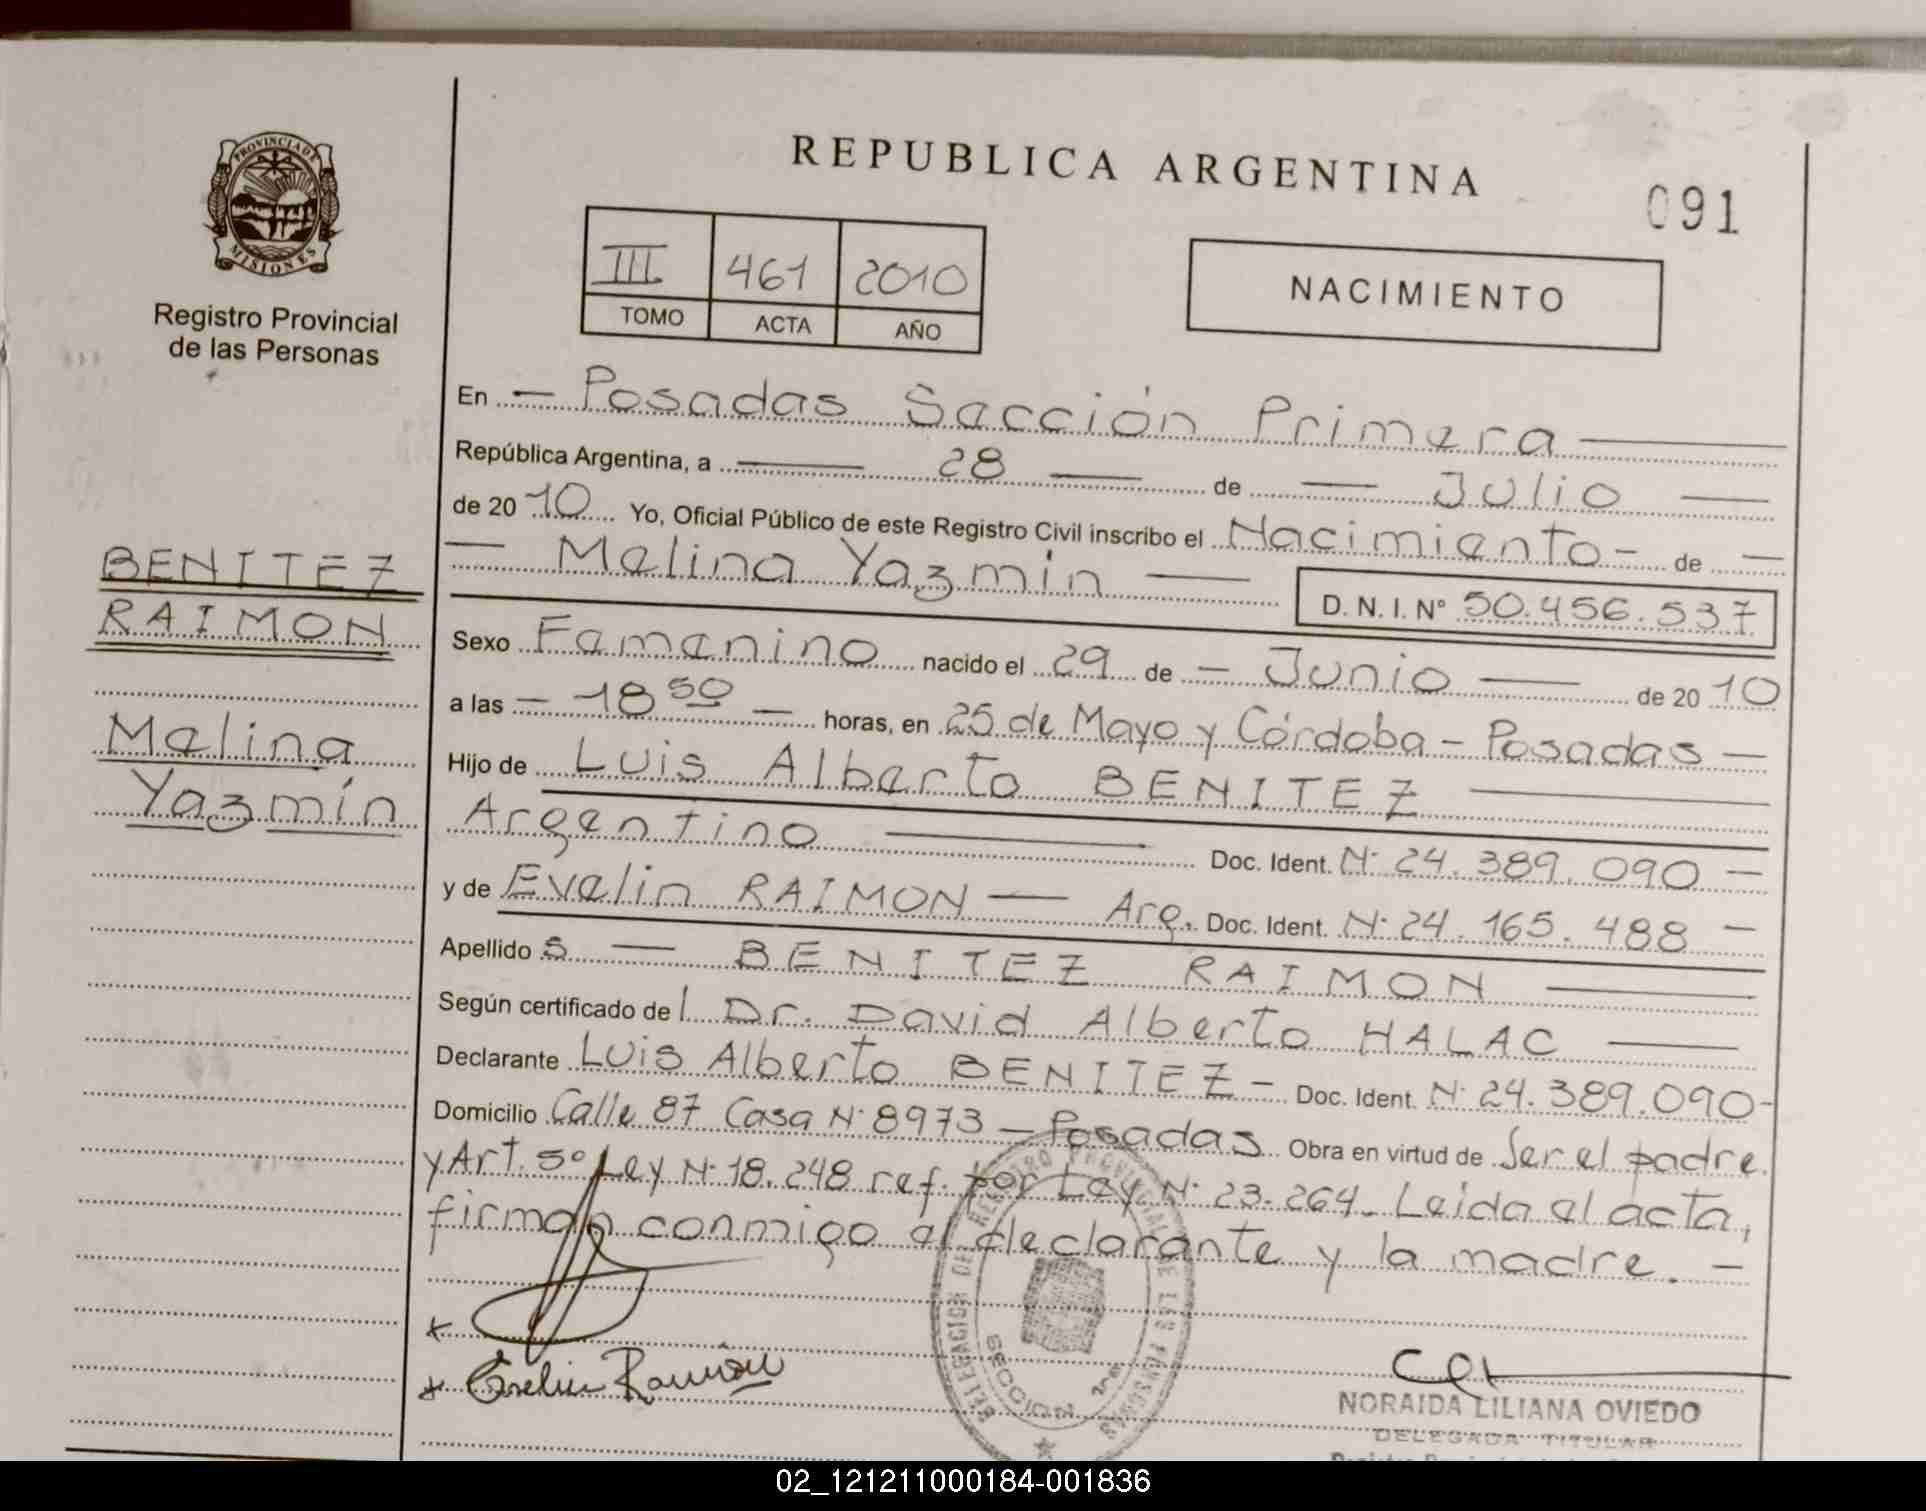 PROVINCIA DE
MISIONES
Registro Provincial
de las Personas
BENITEZ
RAIMON
Melina
Yazmín
REPUBLICA ARGENTINA
091
III 461 2010
TOMO ACTA AÑO
NACIMIENTO
En — Posadas Sección Primera —
República Argentina, a — 28 — de — Julio —
de 2010 Yo, Oficial Público de este Registro Civil inscribo el Nacimiento - de —
— Melina Yazmín — D. N. I. N° 50.456.537
Sexo Femenino nacido el 29 de — Junio — de 2010
a las — 18 50 — horas, en 25 de Mayo y Córdoba - Posadas —
Hijo de Luis Alberto BENITEZ —
Argentino — Doc. Ident. N° 24.389.090 —
y de Evelin RAIMON — Arg. Doc. Ident. N° 24.165.488 —
Apellido s — BENITEZ RAIMON —
Según certificado de l Dr. David Alberto HALAC —
Declarante Luis Alberto BENITEZ - Doc. Ident. N° 24.389.090-
Domicilio Calle 87 Casa N° 8973 — Posadas Obra en virtud de Ser el padre
y Art. 5° Ley N° 18.248 ref. por Ley N° 23.264. Leida el acta,
firman conmigo el declarante y la madre. —
x
x Evelin Raimon
DELEGACION DEL REGISTRO PROVINCIAL DE LAS PERSONAS
SECCION 1ra
NORAIDA LILIANA OVIEDO
DELEGADA TITULAR
02_121211000184-001836